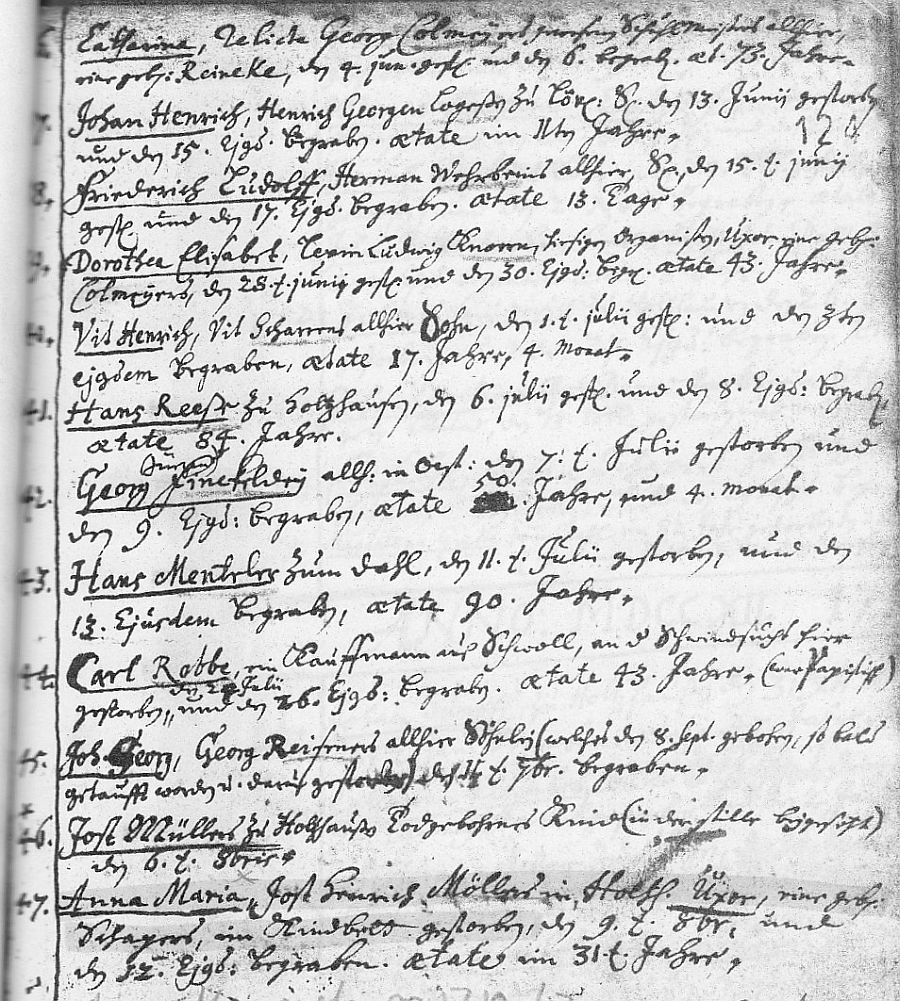 6. Catharina, Relicta Georg Colmeyers gewesen Schulmeisters allhier,
eine geb: Reineke, den 4. jun. gest. und den 6. begrab. æt. 73. Jahre.
7. Johan Henrich, Henrich Georgen S. den 13. Junij gestorb
und den 15. Ejgd. begraben. ætate im 11ten Jahre.
8. Friederich Ludolff, Herman Wehrbeins allhier, S., den 15. t. junij
gest. und den 17. Ejgd. begraben. ætate 13. Tage.
9. Dorothea Elisabet, Levin Ludwig Knorren, hiesigen Organisten, Uxor, eine geb:
Colmeyers, den 28. t. junij gest. und den 30. Ejgd. begr. ætate 43. Jahre.
40. Vit Henrich, Vit Scharrens allhier Sohn, den 1. t. julii gest: und den 3ten
ejgdem begraben, ætate 17. Jahre, 4. Monat.
41. Hans Reese zu Holtzhausen, den 6. julii gest. und den 8. Ejgd: begrab.
ætate 84. Jahre.
42. Georg Finefeldey allh: in den 7. t. Julii gestorben und
den 9. Ejgd: begraben, ætate 50. Jahre, und 4. Monat.
43. Hans Menteler zum Dahl, den 11. t. Julii gestorben, und den
13. Ejusdem begraben, ætate 90. Jahre.
44. Carl Robbe, ein Kauffmann auß Schwoll, an d Schwindsucht hier
gestorben, den 24 Julii und den 26. Ejgd: begraben. ætate 43. Jahre. (war Papistisch)
45. Joh. Georg, Georg Reiseners allhier Söhnlein (welches den 8. Sept. gebohren, so bald
getaufft worden u. darauf gestorben) den 11 t. 7br. begraben.
46. Jost Müllers zu Holtzhausen Todgebohrnes Kind (in der stille beygesetzt)
den 6. t. 8bris.
47. Anna Maria, Jost Henrich Möllers in Holtzh. Uxor, eine geb:
Schapers, im Kindbett gestorben, den 9. t. 8br. und
den 12. Ejgd: begraben. ætate im 31 t. Jahre.